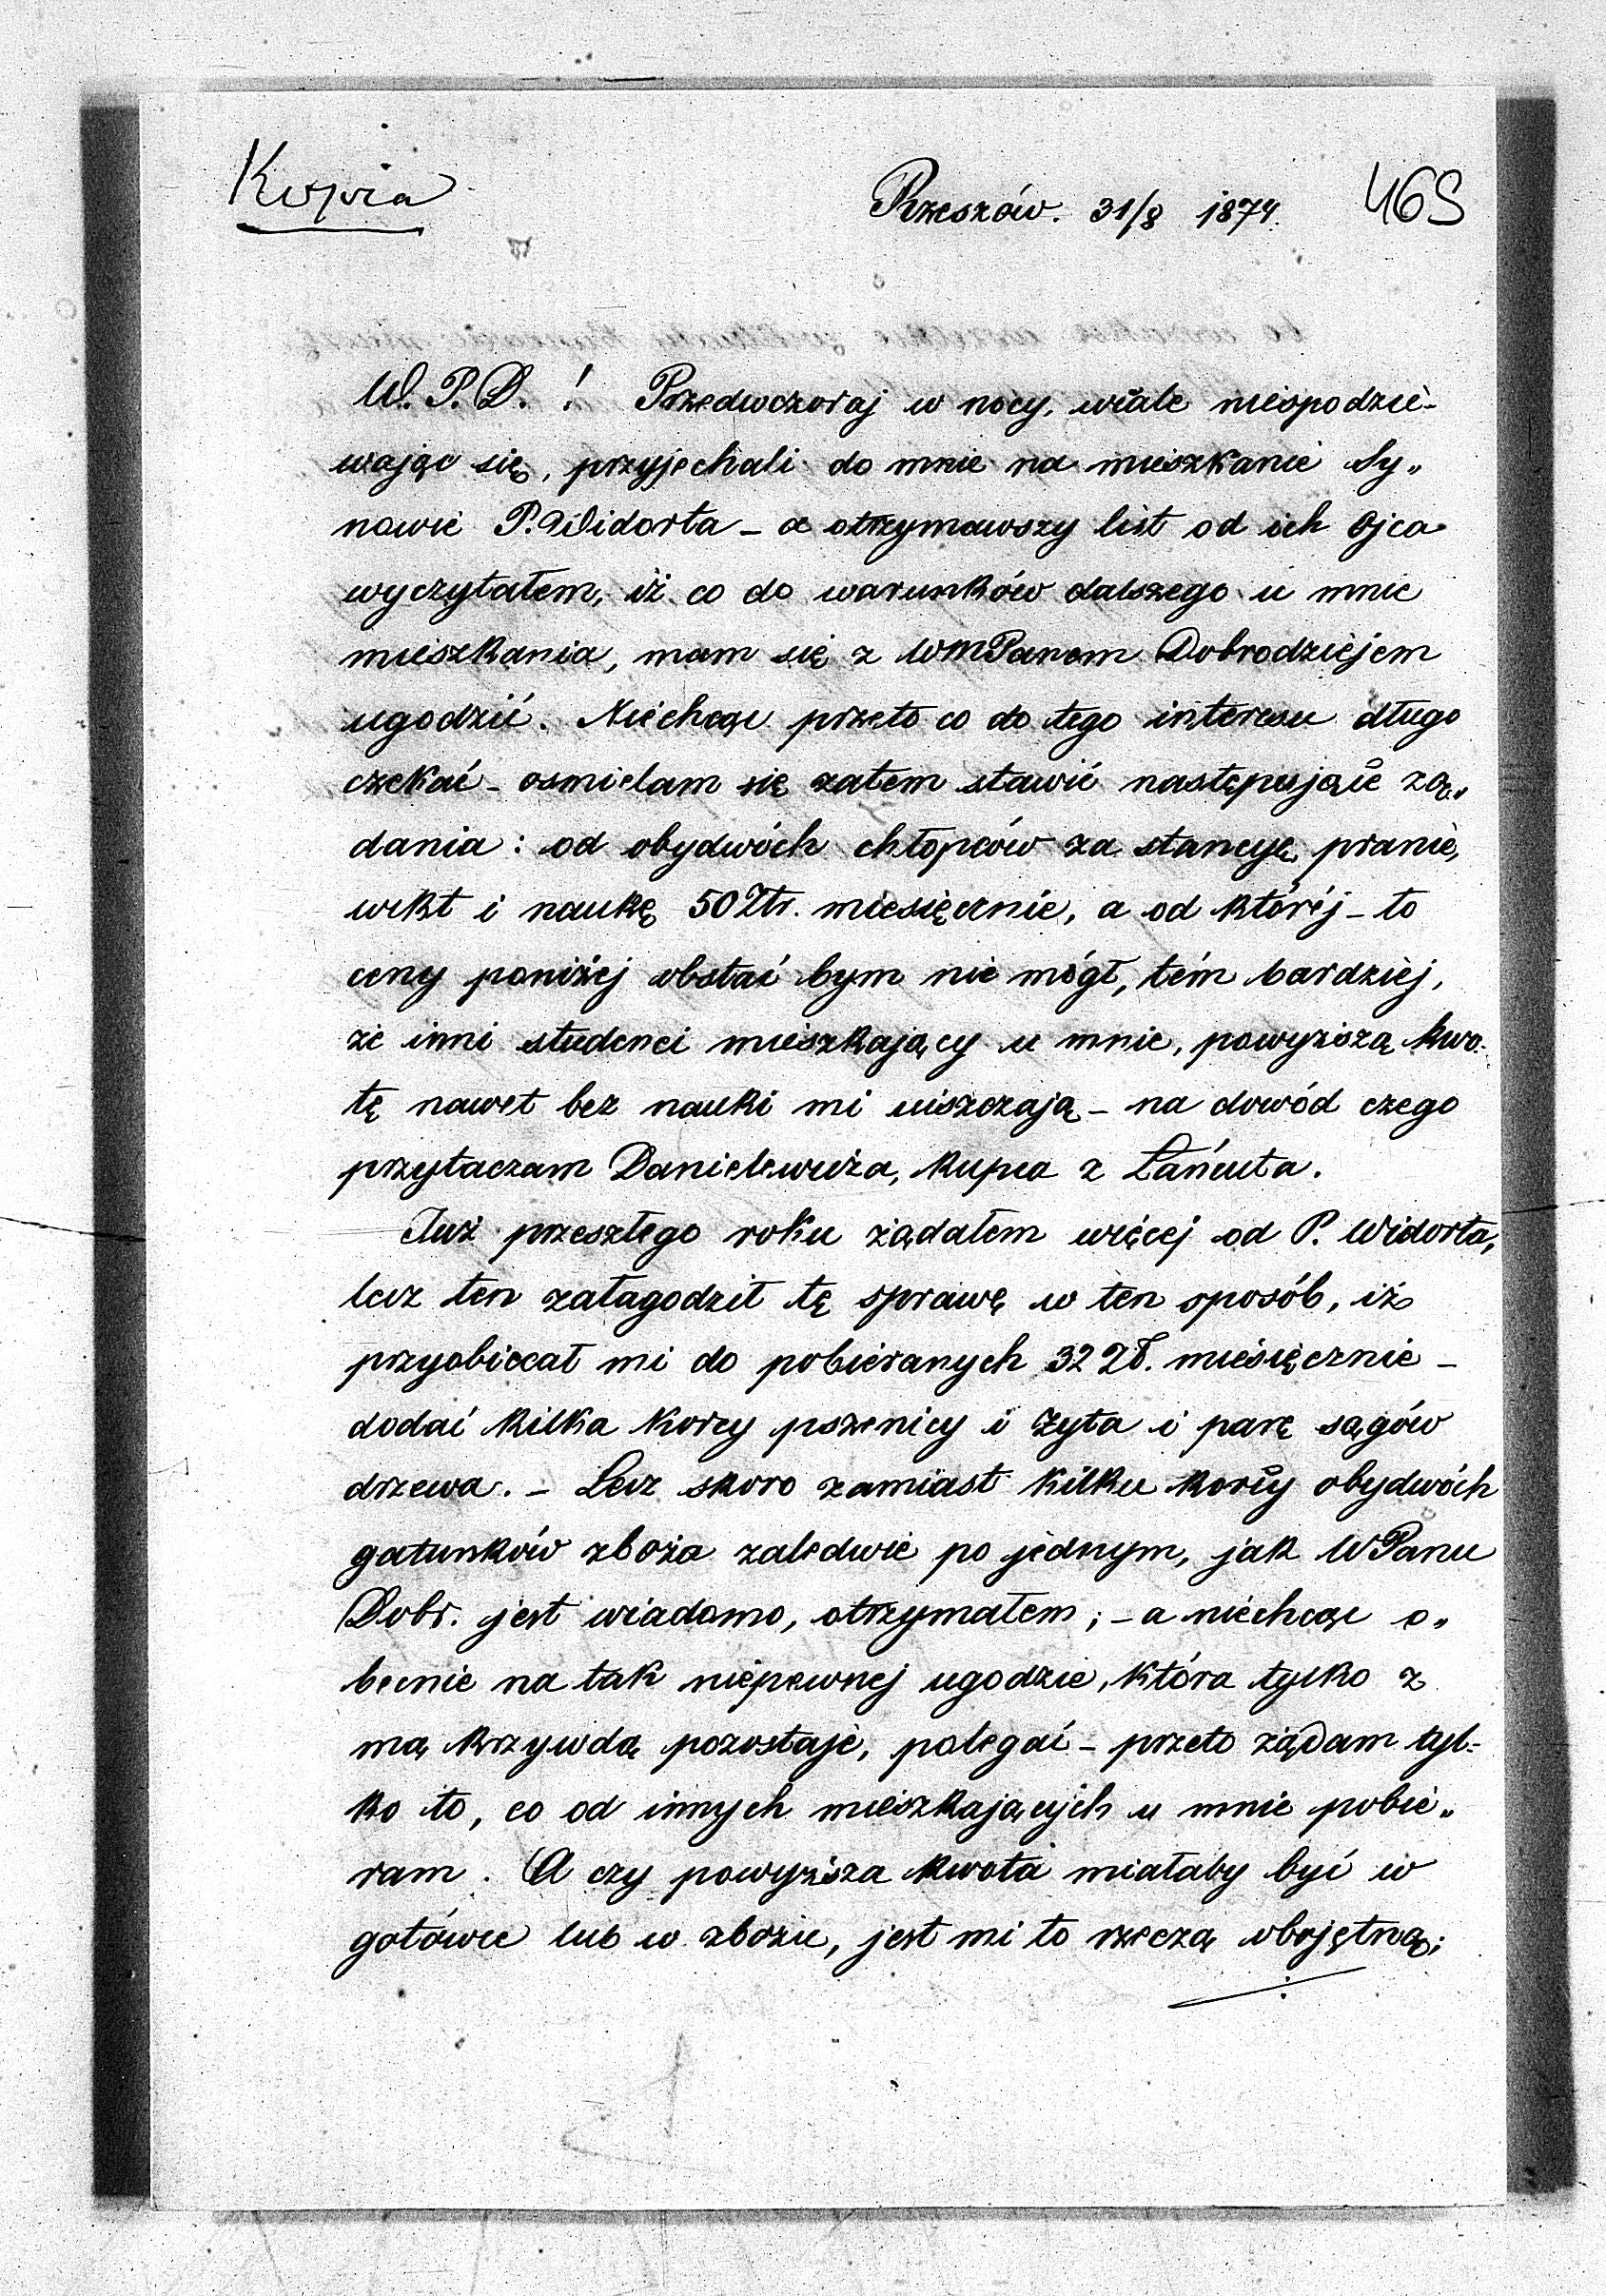 Kopia
Rzeszów. 31/8 1874. 469
W. P. D. ! Przedwczoraj w nocy, wcale niespodzie-
wając się, przyjechali do mnie na mieszkanie Sy„
nowie P. Widorta – a otrzymawszy list od ich ojca
wyczytałem, iż co do warunków dalszego u mnie
mieszkania, mam się z WMPanem Dobrodziejem
ugodzić. Niechcąc przeto co do tego interesu długo
czekać – osmielam się zatem stawić następujące żą„
dania : od obydwóch chłopców za stancyę, pranie,
wikt i naukę 50 Złr. miesięcznie, a od któréj – to
ceny poniżej obstać bym nie mógł, tém bardziej,
że inni studenci mieszkający u mnie, powyższą kwo-
tę nawet bez nauki mi uiszczają – na dowód czego
przytaczam Danielewicza, kupca z Łańcuta.
Już przeszłego roku żądałem więcej od P. Widorta,
lecz ten załagodził tę sprawę w ten sposób, iż
przyobiecał mi do pobieranych 32 Zł. miesięcznie –
dodać kilka korcy pszenicy i żyta i parę sągów
drzewa. – Lecz skoro zamiast kilku korcy obydwóch
gatunków zboża zaledwie po jednym, jak WPanu
Dobr. jest wiadomo, otrzymałem ; – a niechcąc o„
becnie na tak niepewnej ugodzie, która tylko z
mą krzywdą pozostaje, polegać – przeto żądam tyl-
ko to, co od innych mieszkających u mnie pobie„
ram . A czy powyższa kwota miałaby być w
gotówce lub w zbożu, jest mi to rzeczą obojętną;